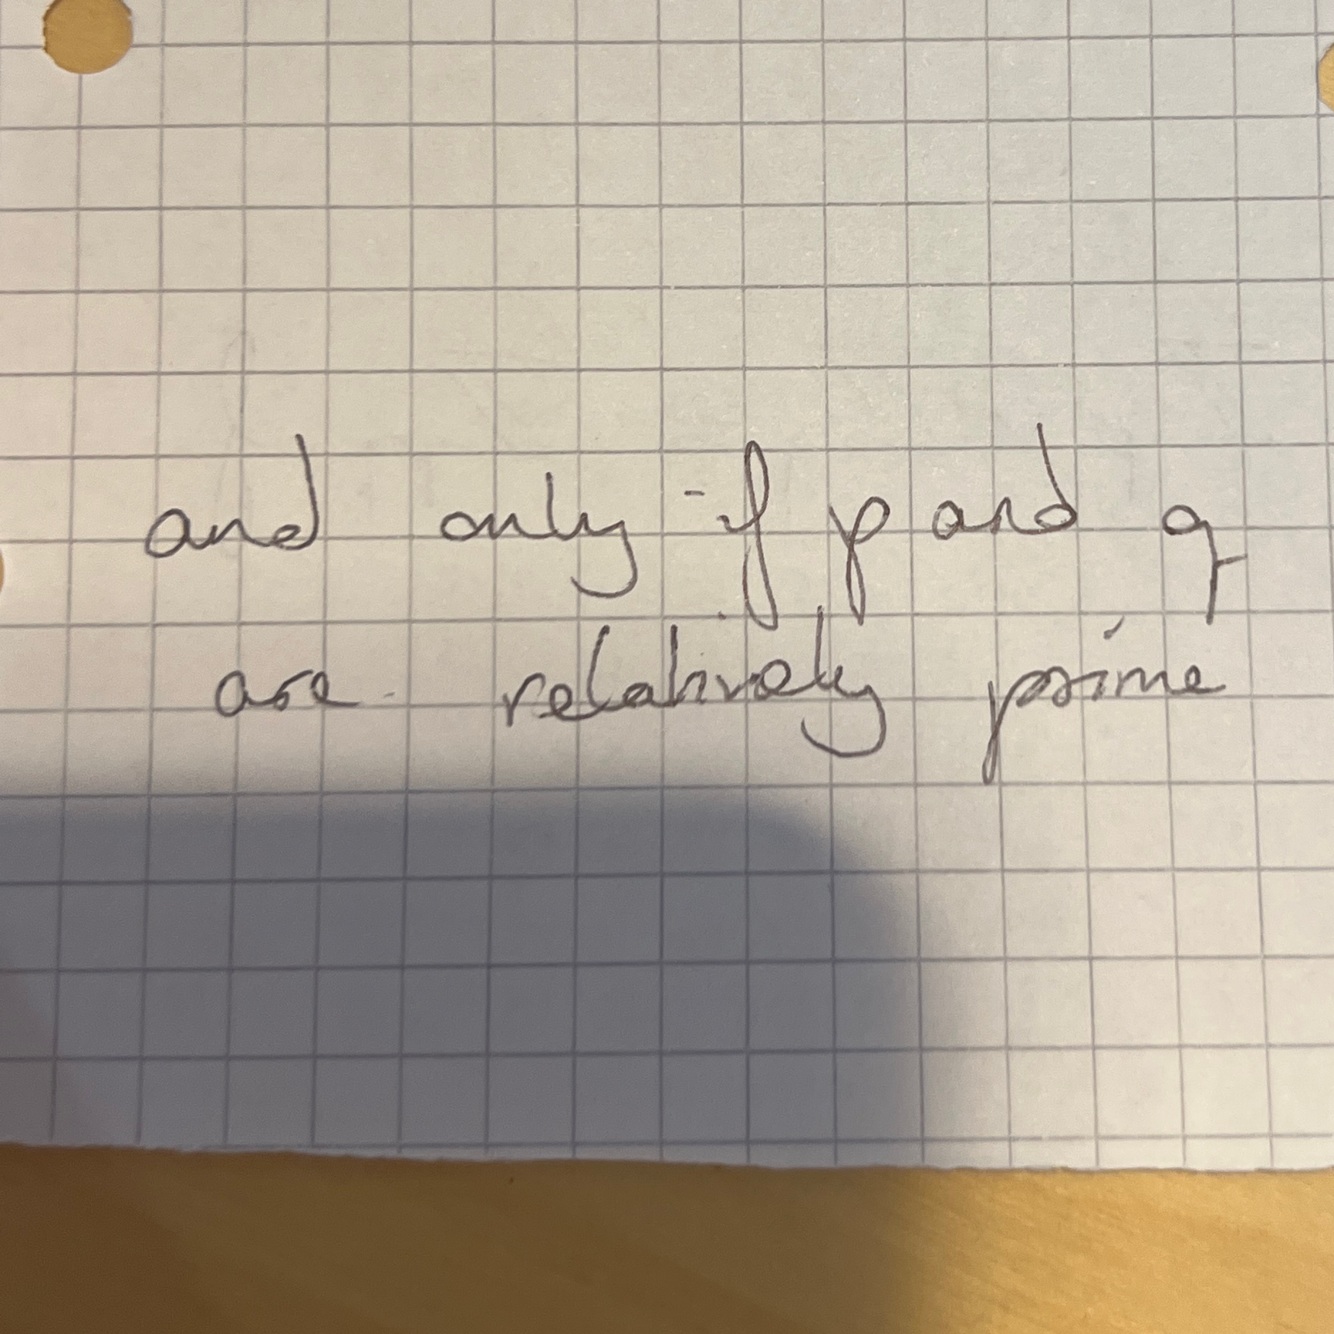 and only if p and q
are relatively prime